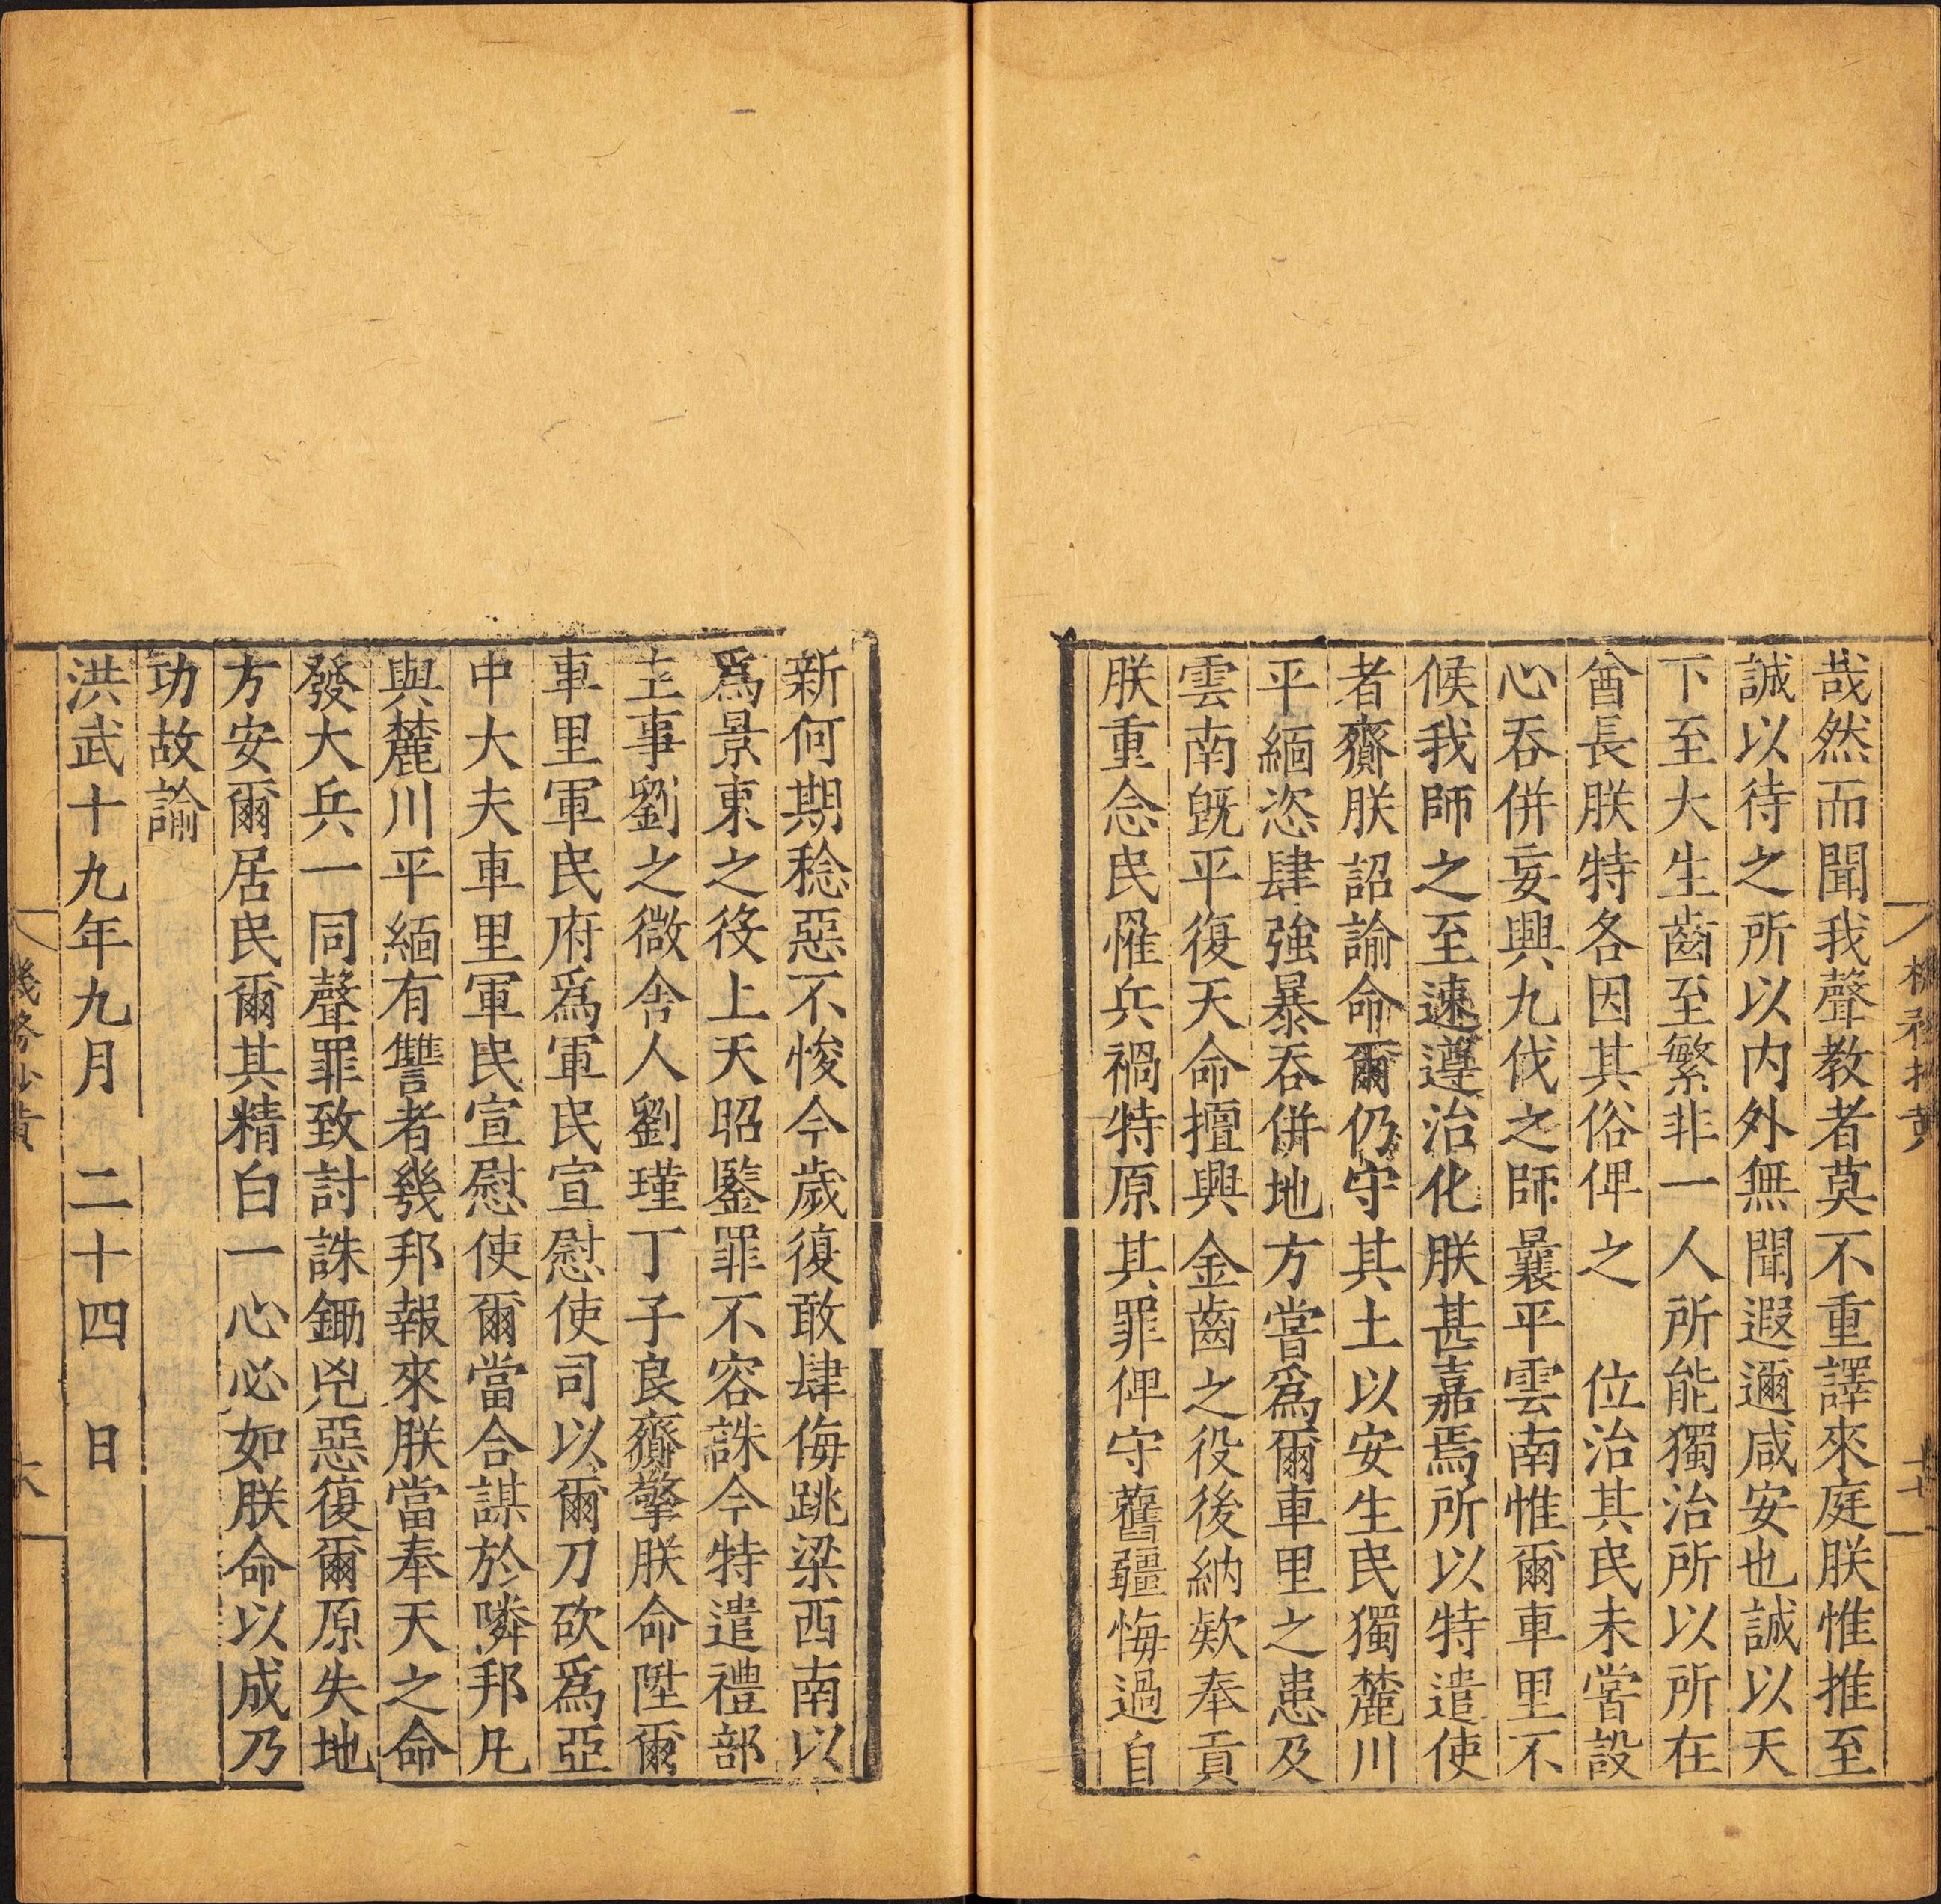 哉然而聞我聲教者莫不重譯來庭朕惟推至
誠以待之所以内外無聞遐邇咸安也誠以天
下至大生齒至繁非一人所能獨治所以所在
酋長朕特各因其俗俾之　位治其民未嘗設
心吞併妄興九伐之師曩平雲南惟爾車里不
候我師之至速遵治化朕甚嘉焉所以特遣使
者齎朕詔諭命爾仍守其土以安生民獨麓川
平緬恣肆強暴吞併地方嘗爲爾車里之患及
雲南旣平復天命擅興金齒之役後納欵奉貢
朕重念民罹兵禍特原其罪俾守舊疆悔過自
新何期稔惡不悛今歲復敢肆侮跳梁西南以
爲景東之役上天昭鑒罪不容誅今特遣禮部
主事劉之微舍人劉瑾丁子良齎擎朕命陞爾
車里軍民府爲軍民宣慰使司以爾刀砍爲亞
中大夫車里軍民宣慰使爾當合謀於隣邦凡
與麓川平緬有讐者幾邦報來朕當奉天之命
發大兵一同聲罪致討誅鋤兇惡復爾原失地
方安爾居民爾其精白一心必如朕命以成乃
功故諭
洪武十九年九月　二十四　日